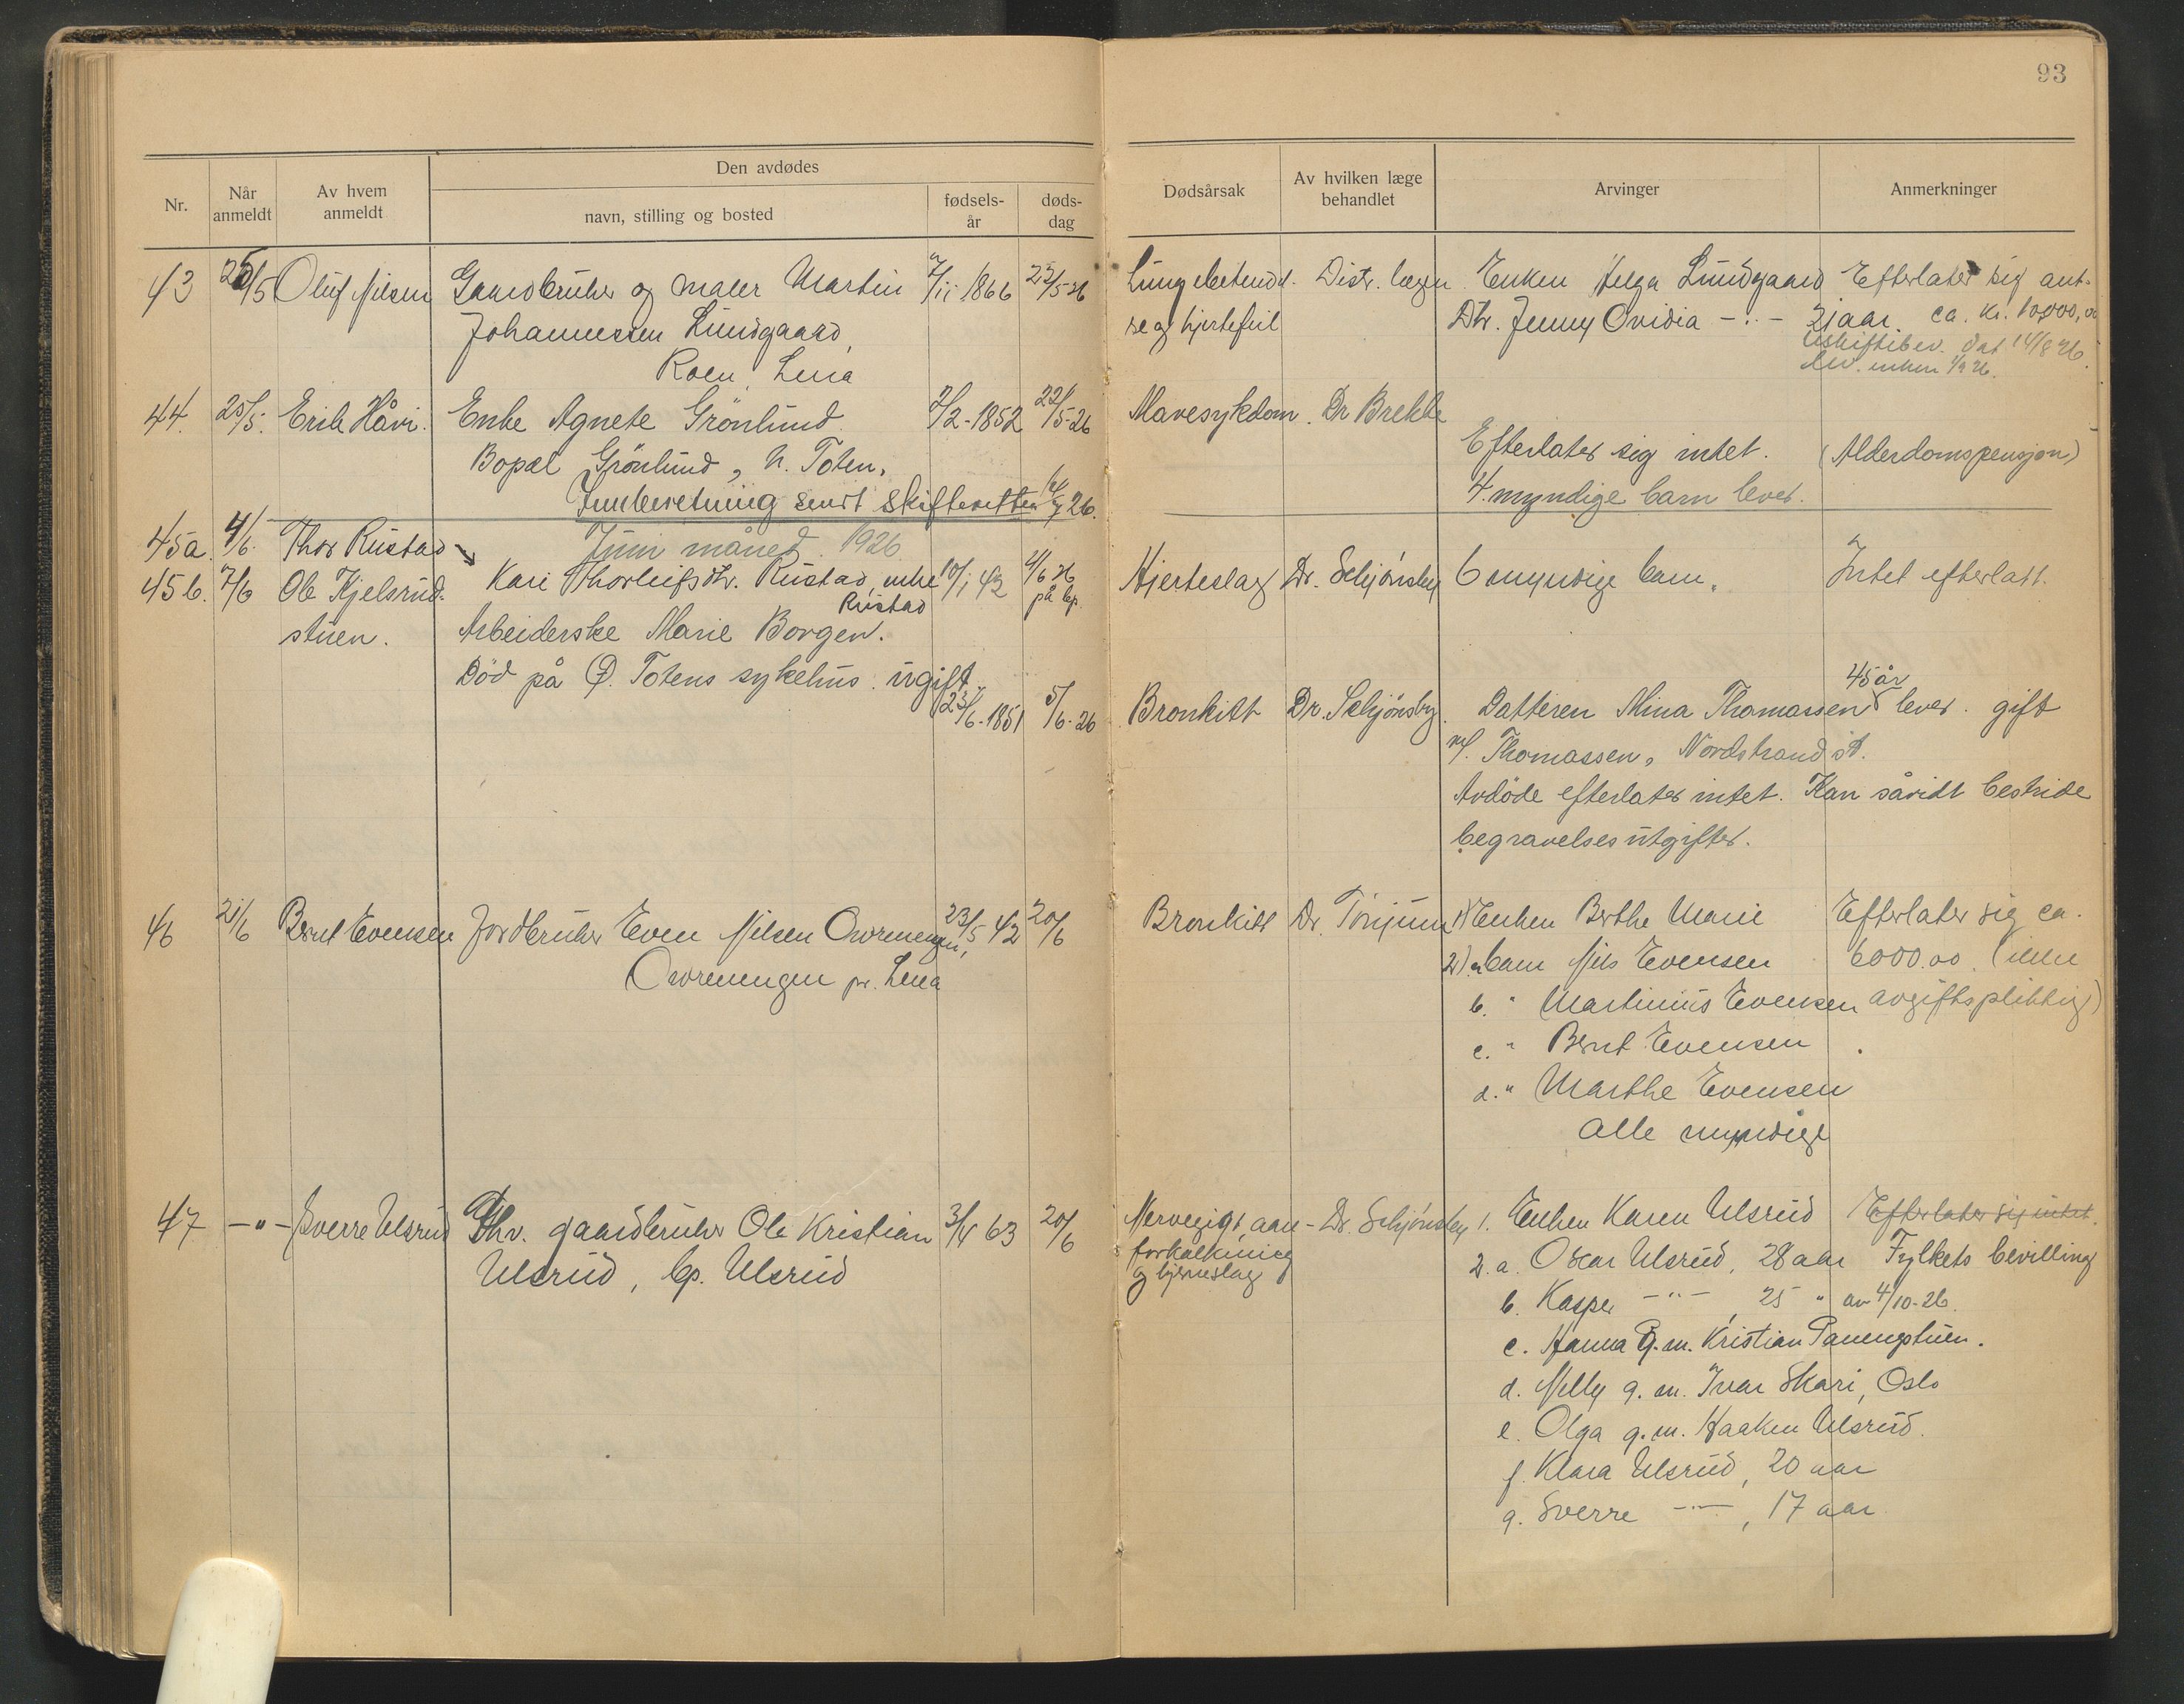 93
Nr.
Når anmeldt
Av hvem anmeldt
Den avdødes
navn, stilling og bosted
fødsels-år
døds-dag
Dødsårsak
Av hvilken læge behandlet
Arvinger
Anmerkninger
43 25/5 Oluf Nilsen Gaardbruker og maler Martin 7/11 1866 23/5-26 Distr. lægen Enken Helga Lundgaard Efterlater sig ant.
Johannessen Lundgaard, se og hjertefeil Dtr. Jenny Ovidia -"- 21 aar. ca. kr. 10,000,00
Roen, Lena
Uskiftebev. dat 14/8 26.
lev. enken 1/9 26.
44. 25/5. Erik Håvi. Enke Agnete Grönlund. 7/2-1852 22/5-26 Mavesykdom. Dr Brekke
Bopæl Grönlund, h. Toten. Efterlater sig intet. (Alderdomspensjon)
Innberetning sendt skifteretten 26. 4 myndige barn lever.
Juni måned. 1926
45a. 4/6. Thor Rustad
Kari Thorleifsdtr. Rustad, enke 10/1 43 4/6 26 Hjerteslag Dr. Schjönsby 6 myndige barn. Intet efterlatt.
Rustad på bp.
45b. 7/6 Ole Kjelsrud-
stuen. Arbeiderske Marie Borgen.
Död på Ø. Totens sykehus. ugift
23/6-1851 5/6-26 Bronkitt Dr. Schjönsby. Datteren Mina Thomassen 45 år lever. gift
m/. Thomassen, Nordstrand st.
Avdöde efterlater intet. Kan såvidt bestride
begravelsesutgifter.
46 21/6 Bernt Evensen Jordbruker Even Nilsen Owrenengen, 23/5 42 20/6 Bronkitt Dr. Torjum 1) Enken Berthe Marie Efterlater sig ca.
Owrenengen pr. Lena 2) a. barn Nils Evensen 6000.00. (ikke
b. " Martinius Evensen avgiftspliktig)
c. " Bernt Evensen
d. " Marthe Evensen
alle myndige
47 -"- Sverre Ulsrud Fhv. gaardbruker Ole Kristian 3/5 63 20/6 Nervegigt, aare- Dr. Schjönsby 1. Enken Karen Ulsrud Efterlater sig intet.
Ulsrud, bp. Ulsrud forkalkning
og hjerneslag
2. a. Oscar Ulsrud, 28 aar Fylkets bevilling
b. Kasper -"-, 25 " av 4/10-26.
c. Hanna g. m. Kristian Panengstuen.
d. Nelly g. m. Ivar Skari, Oslo
e. Olga g. m. Haaken Ulsrud.
f. Klara Ulsrud, 20 aar
g. Sverre -"-, 17 aar